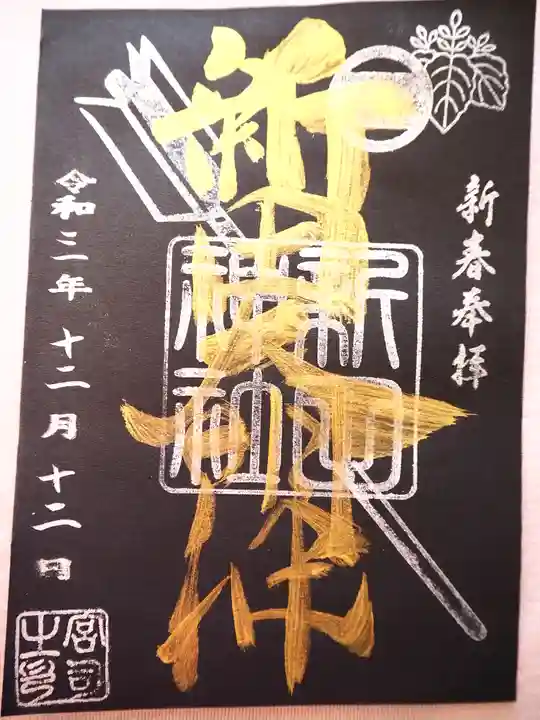 新春奉拝
新田大明神
新田
神社
令和三年 十二月十二日
宮司
之印